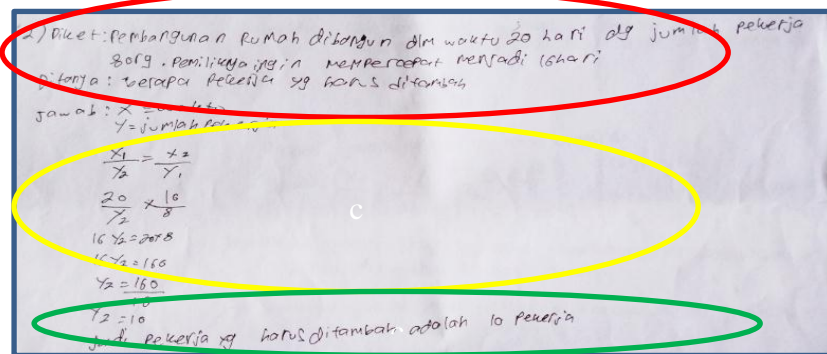 2) Diket: Pembangunan Rumah dibangun dlm waktu 20 hari dg jumlah pekerja
8org. Pemiliknya ingin mempercepat menjadi 16hari
Ditanya: berapa pekerja yg harus ditambah
Jawab: X =
Y = jumlah
X1/Y2 = X2/Y1
20/Y2 × 16/8
16 Y2 = 20×8
16 Y2 = 160
Y2 = 160/16
Y2 = 10
Jadi pekerja yg harus ditambah adalah 10 pekerja
c